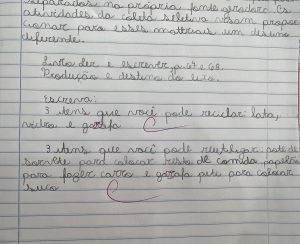 separados na própria fonte geradora. As
atividades da coleta seletiva visam propor
cionar para esses materiais um destino
diferente.
Livro der e escrentr, p. 67 e 68.
Produção e destino do lixo.
Escreva:
3 itens que você pode reciclar: lata,
vidro e garafa
3 itens que você pode reutilizar: pote de
sorvete para colocar resto de comida papelão
para fazer carro e garafa peti para colocar
suco